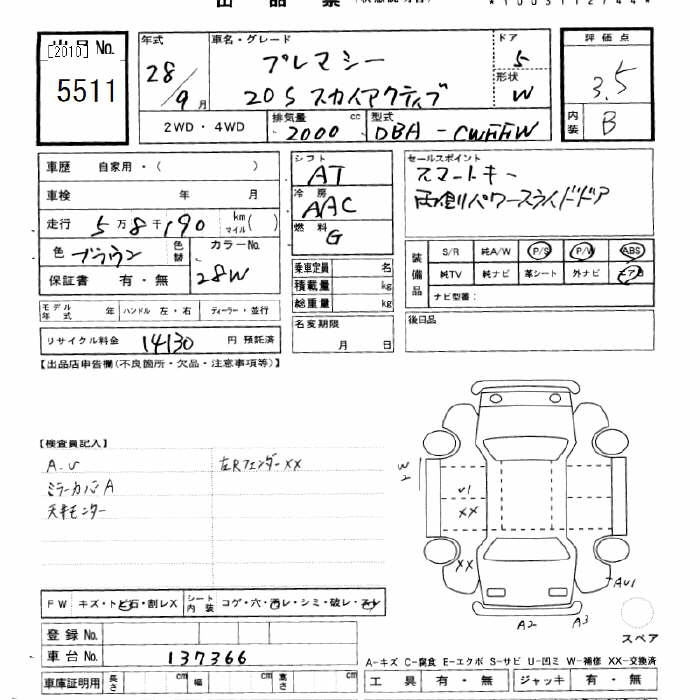 出品票
*1003112744*
[2010]
出品 No.
5511
年式
28/9月
車名・グレード
プレマシー
20S スカイアクティブ
ドア
5
形状
W
評価点
3.5
内装
B
2WD・4WD
排気量
2000 cc
型式
DBA-CWFFW
車歴 自家用・( )
車検 年 月
走行 5万8千190 km マイル( )
色 ブラウン 色替
カラーNo.
28W
保証書 有・無
シフト
AT
冷房
AAC
燃料
G
乗車定員 名
積載量 kg
総重量 kg
セールスポイント
スマートキー
両側パワースライドドア
装備品
S/R 純A/W P/S P/W ABS
純TV 純ナビ 革シート 外ナビ エアB
ナビ型番:
モデル年式 年 ハンドル 左・右 ディーラー・並行
リサイクル料金 14130 円 預託済
名変期限
月 日
後日品
【出品店申告欄(不良箇所・欠品・注意事項等)】
【検査員記入】
A.U
左Rフェンダー XX
ミラーカバーA
天井モニター
W2
U1
XX
XX
AU1
A2
A3
スペア
FW キズ・トビ石・割レX
シート内装 コゲ・穴・汚レ・シミ・破レ・スレ
登録 No.
車台 No. 137366
車庫証明用 長さ cm 幅 cm 高さ cm
A-キズ C-腐食 E-エクボ S-サビ U-凹ミ W-補修 XX-交換済
工具 有・無 ジャッキ 有・無